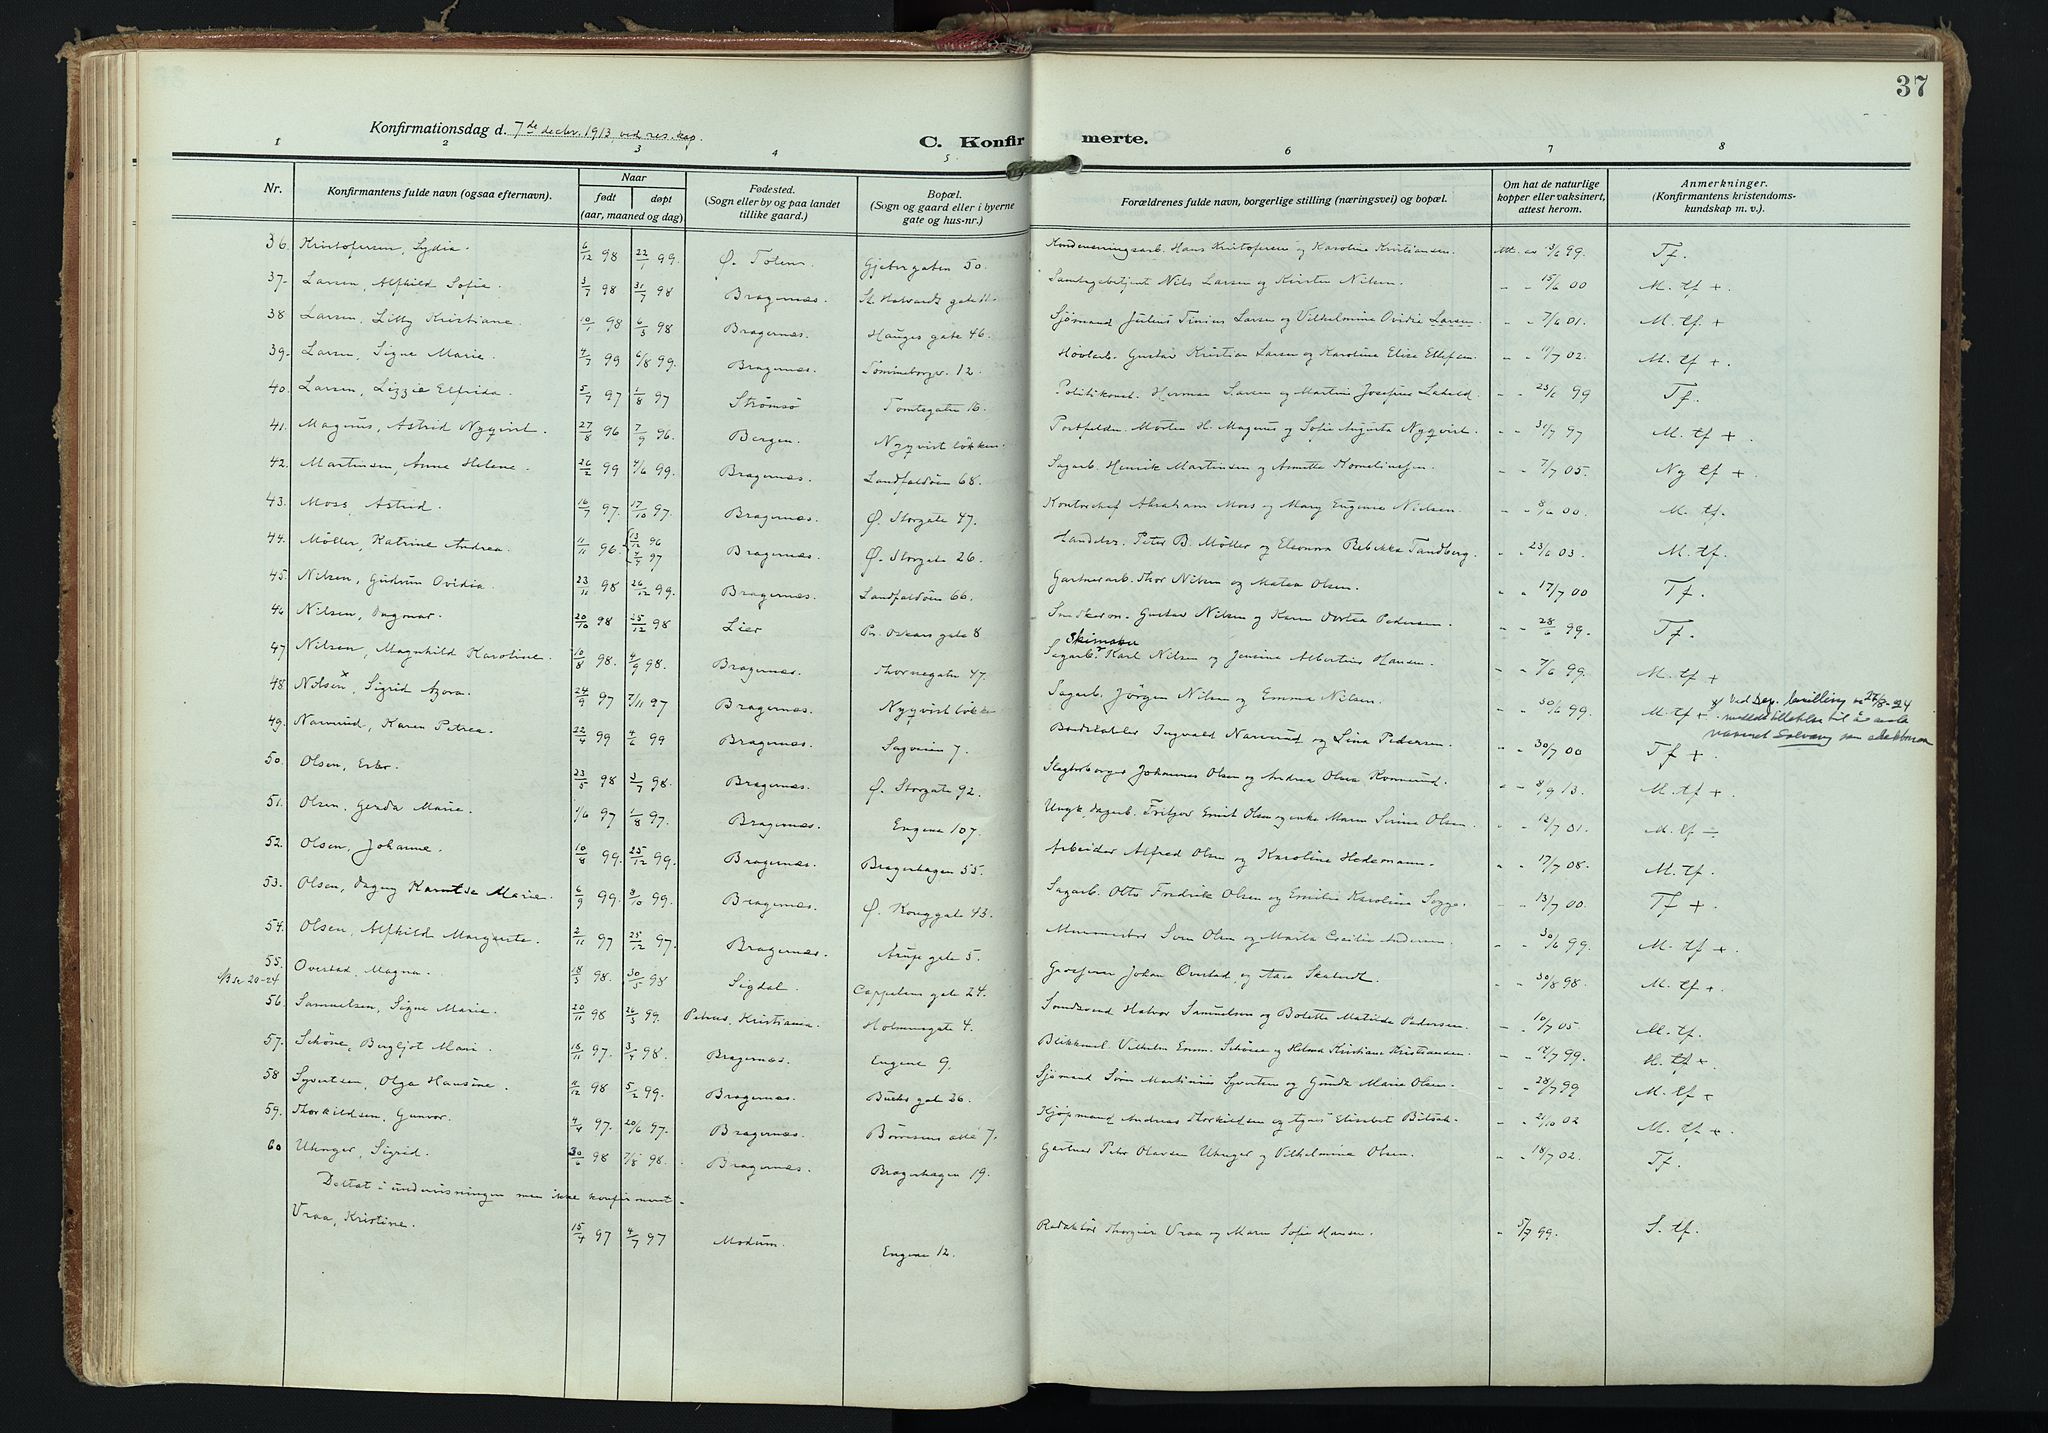 37
Konfirmationsdag d. 7de decbr. 1913, ved res. kap.
C. Konfirmerte.
1 2 3 4 5 6 7 8
Nr. Konfirmantens fulde navn (ogsaa efternavn). Naar født døpt (aar, maaned og dag) Fødested. (Sogn eller by og paa landet tillike gaard.) Bopæl. (Sogn og gaard eller i byerne gate og hus-nr.) Forældrenes fulde navn, borgerlige stilling (næringsvei) og bopæl. Om hat de naturlige kopper eller vaksinert, attest herom. Anmerkninger. (Konfirmantens kristendomskundskap m. v.).
36. Kristofersen, Lydia. 6/12 98 22/1 99. Ø. Toten. Gjetergaten 50. Kondenseringsarb. Hans Kristofersen og Karoline Kristiansen. Att. av 3/6 99. Tf.
37. Larsen, Alfhild Sofie. 3/7 98 31/7 98 Bragernæs. St. Halvards gate Nils Larsen og Kirsten Nilsen. " " 15/6 00 M. tf +.
38 Larsen, Lilly Kristiane. 10/1 98 6/3 98 Bragernæs. Hauges gate 46. Sjømand Julius Tinius Larsen og Vilhelmine Ovidia Larsen. " " 7/6 01. M. tf. +
39. Larsen, Signe Marie. 4/7 99 6/8 99. Bragernæs. Tømmerborgr. 12. Høvlarb. Gustav Kristian Larsen og Karoline Elise Ellefsen. " " 11/7 02. M. tf +
40. Larsen, Lizzie Elfrida. 5/7 97 1/8 97 Strømsø Tomtegaten 16. Politikonst. Herman Larsen og Martine Josefine " " 23/6 99 Tf.
41. Magnus, Astrid Nyqvist. 27/8 96 7/9 96. Bergen. Nyqvistløkken. Morten H. Magnus og Sofie Augusta Nyqvist. " " 31/7 97 M. tf +.
42. Martinsen, Anne Helene. 26/2 99 4/6 99. Bragernæs. Landfaldøen 68. Sagarb. Henrik Martinsen og Annette Korneliussen. " " 7/7 05. Ng tf +
43. Moss, Astrid. 16/7 97. 17/10 97. Bragernæs. Ø. Storgate 47. Kontorchef Abraham Moss og Mary Eugenie Nielsen. " " 8/6 00. M. tf.
44. Møller, Katrine Andrea. 11/11 96. 13/12 96 4/4 97 Bragernæs. Ø. Storgate 26. Handelsr. Peter B. Møller og Eleonora Rebekka Tandberg. " " 23/6 03. M. tf.
45. Nilsen, Gudrun Ovidia. 23/11 98 26/12 99. Bragernæs. Landfaldøen 66. Gartnerarb. Thor Nilsen og Matea Olsen. " " 17/7 00 Tf.
46 Nilsen, Dagmar. 20/10 98 25/12 98 Lier Pr. Oscars gate 8 Gustav Nilsen og Karen Dortea Pedersen. " " 28/6 99. Tf.
47 Nilsen, Magnhild Karoline. 10/8 98. 4/9 98. Bragernæs. Thornegate 47. Sagarb. Karl Nilsen og Jensine Albertine Hansen. " " 7/6 99. M. tf +
48. Nilsen x, Sigrid Azora. 24/9 97 7/11 97 Bragernæs. Nyqvistløkken Sagarb. Jørgen Nilsen og Emma Nilsen. " " 30/6 99. M. tf + x Ved Dep. bevilling av 27/8-24 tillatelse til å navnet Solvang som slektsnavn
49. Narverud, Karen Petrea. 22/4 99 4/6 99 Bragernæs. Sagveien 7. Ingvald Narverud og Lina Pedersen. " " 30/7 00 Tf +
50. Olsen, Ester. 23/5 98 3/7 98. Bragernæs. Ø. Storgate 92. Johannes Olsen og Andrea Olsen " " 8/9 13. M. tf +.
51. Olsen, Gerda Marie. 1/6 97 1/8 97. Bragernæs. Engene 107. Ungk. dagarb. Fritjov Ernst Olsen og enke Maren Serine Olsen. " " 12/7 01. M. tf ÷
52. Olsen, Johanne. 10/8 99. 25/12 99. Bragernæs. Bragerhagen 55. Arbeider Alfred Olsen og Karoline Hedemann. " " 17/7 08. M. tf.
53. Olsen, Dagny Marie. 6/9 99. 8/10 99. Bragernæs. Ø. Konggate 43. Sagarb. Otto Fredrik Olsen og Emilie Karoline " " 13/7 00. Tf +.
54. Olsen, Alfhild Margarete. 2/11 97 25/12 97. Bragernæs. Arups gate 5. Murmester Olsen og Marta Cecilie Andersen. " " 30/6 99. M. tf +
55. Overstad, Magna. 18/3 98. 30/5 98 Sigdal. Cappelens gate 24. Johan Overstad og " " 30/8 98. M. tf +.
20-24
56. Samuelsen, Signe Marie. 20/11 98 26/3 99. Petrus, Kristiania. Holmenegate 4. Halvor Samuelsen og Bolette Matilde Pedersen. " " 10/7 05. M. tf.
57. Schöne, Bergljot Marie. 18/11 97. 3/4 98. Bragernæs. Engene 9. Blikkensl. Vilhelm Schöne og Helma Kristiane Kristiansen. " " 12/7 99. M. tf +
58 Syvertsen, Olga Hansine. 11/12 98 5/2 99. Bragernæs. Buchs gate 26. Sjømand Søren Martinius Syvertsen og Gunda Marie Olsen. " " 28/7 99 M. tf +
59. Thorkildsen, Gunvor. 4/4 97. 20/6 97. Bragernæs. Børresens allé 7. Kjøpmand Andreas Thorkildsen og Agnes Elisabet " " 21/10 02 M. tf +.
60 Uhnger, Sigrid. 30/6 98 7/8 98. Bragernæs. Bragerhagen 19. Gartner Peter Olavsen Uhnger og Vilhelmine Olsen. " " 18/7 02. Tf.
Deltat i undervisningen men ikke konfirmert.
Vraa, Kristine. 15/4 97 4/7 97 Modum. Engene 12. Redaktør Thorgeir Vraa og Maren Sofie Hansen. " 5/7 99. S. tf.